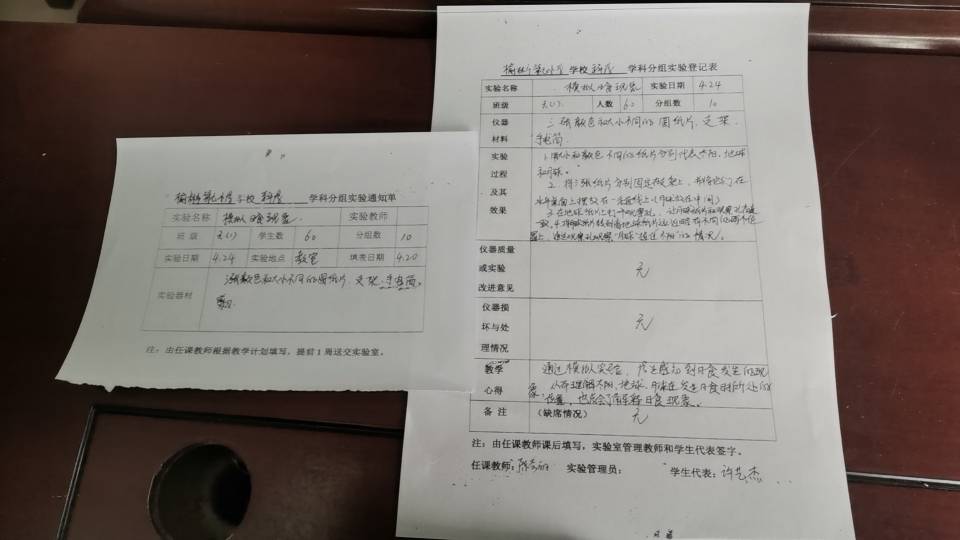 学科分组实验通知单
实验名称 模拟日食现象 实验教师
班 级 五(1) 学生数 60 分组数 10
实验日期 4.24 实验地点 教室 填表日期 4.20
实验器材 3张颜色和大小不同的圆纸片、支架、手电筒。
注：由任课教师根据教学计划填写，提前1周送交实验室。
学校 学科分组实验登记表
实验名称 模拟日食现象 实验日期 4.24
班级 五(1) 人数 60 分组数 10
仪器 三张颜色和大小不同的圆纸片、支架、
材料 手电筒
实验 1.用大小和颜色不同的纸片分别代表太阳、地球
过程 和月球。
及其 2.将3张纸片分别固定在支架上，
效果 水平桌面上摆放在一条直线上(月球放在中间)
3.在地球纸片上打一观察孔，
仪器质量
或实验 无
改进意见
仪器损
坏与处 无
理情况
教学 通过模拟实验，学生感知到日食发生的现
心得 象，从而理解太阳、地球、月球在发生日食时所处的
位置，也学会了解释日食现象。
备 注 (缺席情况) 无
注：由任课教师课后填写，实验室管理教师和学生代表签字。
任课教师： 实验管理员： 学生代表：许艺杰